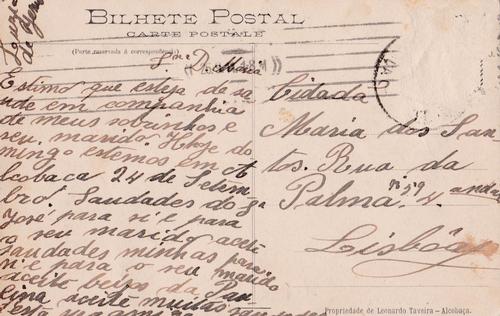 BILHETE POSTAL
CARTE POSTALE
(Parte reservada á correspondencia)
D. Maria
Estimo que esteja de sa
ude em companhia
de meus sobrinhos e
seu marido. Hoje do
mingo estemos em Al
cobaça 24 de Setem
bro. Saudades do
José para si e para
o seu marido aceite
saudades minhas para
si e para o seu marido
aceite beijos da Pau
lina aceite muitas
Cidada
Maria dos San
tos. Rua da
Palma. nº 59 4 andar
Lisbôa
Propriedade de Leonardo Taveira — Alcobaça.